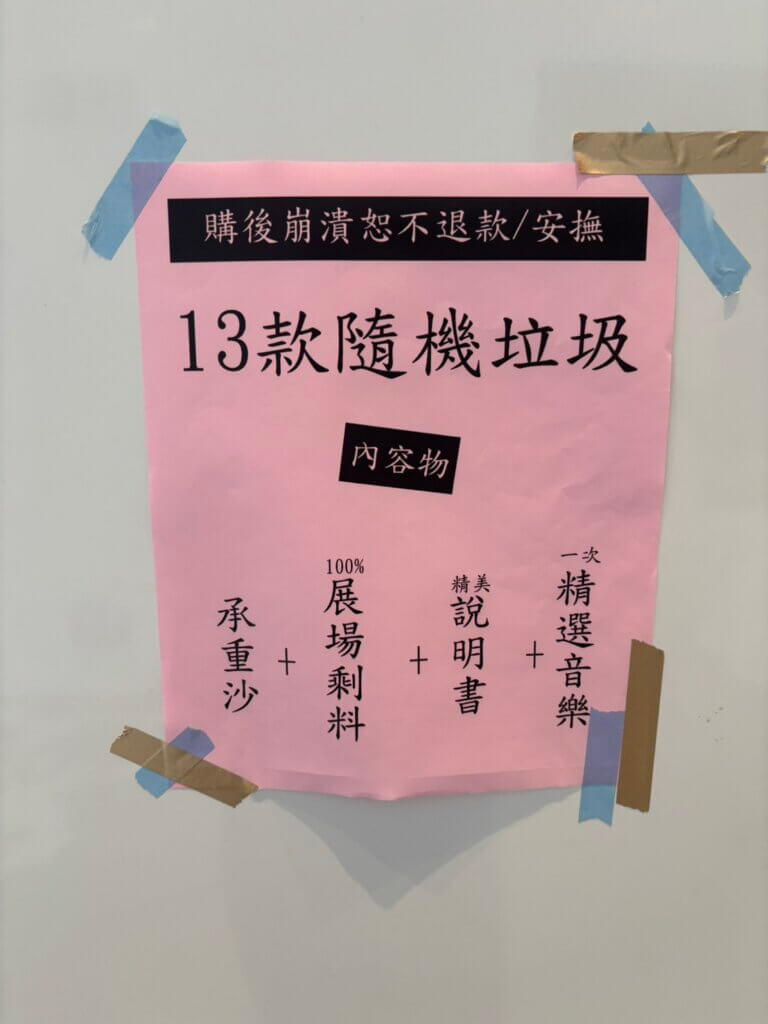 購後崩潰恕不退款/安撫
13款隨機垃圾
內容物
承重沙
+
100%
展場剩料
+
精美
說明書
+
一次
精選音樂